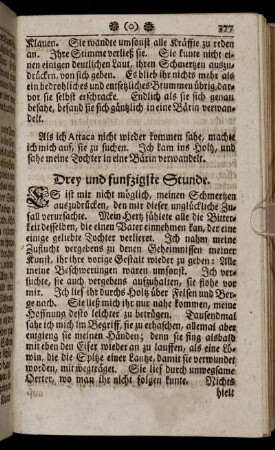 (o) 377
Klauen. Sie wandte umsonst alle Kräffte zu reden
an. Ihre Stimme verließ sie. Sie kunte nicht ei-
nen einigen deutlichen Laut, ihren Schmertzen auszu-
drücken, von sich geben. Es blieb ihr nichts mehr als
ein bedrohliches und entsetzliches Brummen übrig, dar-
vor sie selbst erschrack. Endlich als sie sich genau
besahe, befand sie sich gäntzlich in eine Bärin verwan-
delt.
Als ich Attaca nicht wieder kommen sahe, machte
ich mich auf, sie zu suchen. Ich kam ins Holtz, und
sahe meine Tochter in eine Bärin verwandelt.
Drey und funfzigste Stunde.
ES ist mir nicht möglich, meinen Schmertzen
auszudrücken, den mir dieser unglückliche Zu-
fall verursachte. Mein Hertz fühlete alle die Bitter-
keit desselben, die einen Vater einnehmen kan, der eine
einige geliebte Tochter verlieret. Ich nahm meine
Zuflucht vergebens zu denen Geheimnissen meiner
Kunst, ihr ihre vorige Gestalt wieder zu geben: Alle
meine Beschwerungen waren umsonst. Ich ver-
suchte, sie auch vergebens aufzuhalten, sie flohe vor
mir. Ich lief ihr durchs Holtz über Felsen und Ber-
ge nach. Sie ließ mich ihr nur nahe kommen, meine
Hoffnung desto leichter zu betrügen. Tausendmal
sahe ich mich im Begriff, sie zu erhaschen, allemal aber
entgieng sie meinen Händen; denn sie fing alsbald
mit eben den Eifer wieder an zu lauffen, als eine Lö-
win, die die Spitze einer Lantze, damit sie verwundet
worden, mit wegträget. Sie lief durch unwegsame
Oerter, wo man ihr nicht folgen kunte. Nichts
hielt